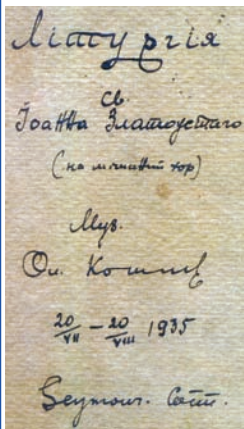 Літургія
Св.
Іоанна Златоустаго
(на мішаний хор)
Муз.
Ол. Кошиць
20/VII – 20/VIII 1935
Seymour. Conn.